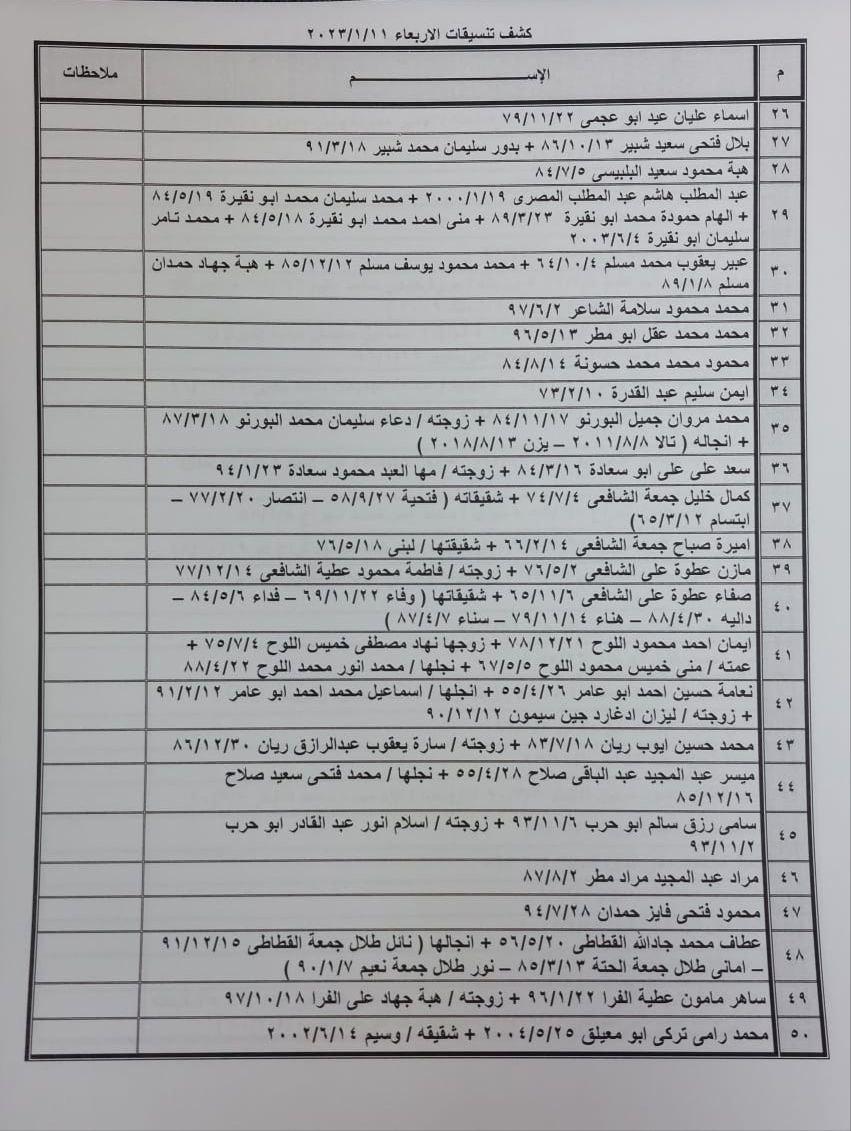 كشف تنسيقات الاربعاء ٢٠٢٣/١/١١
م الإســـــم ملاحظات
٢٦ اسماء عليان عيد ابو عجمى ٧٩/١١/٢٢
٢٧ بلال فتحى سعيد شبير ٨٦/١٠/١٣ + بدور سليمان محمد شبير ٩١/٣/١٨
٢٨ هبة محمود سعيد البلبيسى ٨٤/٧/٥
٢٩ عبد المطلب هاشم عبد المطلب المصرى ٢٠٠٠/١/١٩ + محمد سليمان محمد ابو نقيرة ٨٤/٥/١٩
+ الهام حمودة محمد ابو نقيرة ٨٩/٣/٢٣ + منى احمد محمد ابو نقيرة ٨٤/٥/١٨ + محمد تامر
سليمان ابو نقيرة ٢٠٠٣/٦/٤
٣٠ عبير يعقوب محمد مسلم ٦٤/١٠/٤ + محمد محمود يوسف مسلم ٨٥/١٢/١٢ + هبة جهاد حمدان
مسلم ٨٩/١/٨
٣١ محمد محمود سلامة الشاعر ٩٧/٦/٢
٣٢ محمد محمد عقل ابو مطر ٩٦/٥/١٣
٣٣ محمود محمد محمد حسونة ٨٤/٨/١٤
٣٤ ايمن سليم عبد القدرة ٧٣/٢/١٠
٣٥ محمد مروان جميل البورنو ٨٤/١١/١٧ + زوجته / دعاء سليمان محمد البورنو ٨٧/٣/١٨
+ انجاله ( تالا ٢٠١١/٨/٨ – يزن ٢٠١٨/٨/١٣ )
٣٦ سعد على على ابو سعادة ٨٤/٣/١٦ + زوجته / مها العبد محمود سعادة ٩٤/١/٢٣
٣٧ كمال خليل جمعة الشافعى ٧٤/٧/٤ + شقيقاته ( فتحية ٥٨/٩/٢٧ – انتصار ٧٧/٢/٢٠ –
ابتسام ٦٥/٣/١٢)
٣٨ اميرة صباح جمعة الشافعى ٦٦/٢/١٤ + شقيقتها / لبنى ٧٦/٥/١٨
٣٩ مازن عطوة على الشافعى ٧٦/٥/٢ + زوجته / فاطمة محمود عطية الشافعى ٧٧/١٢/١٤
٤٠ صفاء عطوة على الشافعى ٦٥/١١/٦ + شقيقاتها ( وفاء ٦٩/١١/٢٢ – فداء ٨٤/٥/٦ –
داليه ٨٨/٤/٣٠ – هناء ٧٩/١١/١٤ – سناء ٨٧/٤/٧ )
٤١ ايمان احمد محمود اللوح ٧٨/١٢/٢١ + زوجها نهاد مصطفى خميس اللوح ٧٥/٧/٤ +
عمته / منى خميس محمود اللوح ٦٧/٥/٥ + نجلها / محمد انور محمد اللوح ٨٨/٤/٢٢
٤٢ نعامة حسين احمد ابو عامر ٥٥/٤/٢٦ + انجلها / اسماعيل محمد احمد ابو عامر ٩١/٢/١٢
+ زوجته / ليزان ادغارد جين سيمون ٩٠/١٢/١٢
٤٣ محمد حسين ايوب ريان ٨٣/٧/١٨ + زوجته / سارة يعقوب عبدالرازق ريان ٨٦/١٢/٣٠
٤٤ ميسر عبد المجيد عبد الباقى صلاح ٥٥/٤/٢٨ + نجلها / محمد فتحى سعيد صلاح
٨٥/١٢/١٦
٤٥ سامى رزق سالم ابو حرب ٩٣/١١/٦ + زوجته / اسلام انور عبد القادر ابو حرب
٩٣/١١/٢
٤٦ مراد عبد المجيد مراد مطر ٨٧/٨/٢
٤٧ محمود فتحى فايز حمدان ٩٤/٧/٢٨
٤٨ عطاف محمد جادالله القطاطى ٥٦/٥/٢٠ + انجالها ( نائل طلال جمعة القطاطى ٩١/١٢/١٥
– امانى طلال جمعة الحتة ٨٥/٣/١٣ – نور طلال جمعة نعيم ٩٠/١/٧ )
٤٩ ساهر مامون عطية الفرا ٩٦/١/٢٢ + زوجته / هبة جهاد على الفرا ٩٧/١٠/١٨
٥٠ محمد رامى تركى ابو معيلق ٢٠٠٤/٥/٢٥ + شقيقه / وسيم ٢٠٠٢/٦/١٤